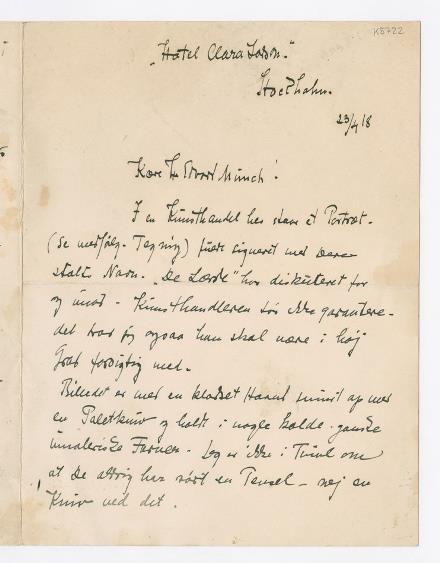 K5722
"Hotel Clara Larson."
Stockholm.
23/4 18
Kære Hr Edvard Munch!
I en Kunsthandel her staar et Portræt -
(se medfølg. Tegning) fuldt signeret med Deres
stolte Navn. "De Lærde" har diskuteret for
og imod - Kunsthandleren tør ikke garantere -
det tror jeg ogsaa han skal være i høj
Grad forsigtig med.
Billedet er med en klodset Haand smurt op med
en Paletkniv og holdt i nogle kolde ganske
umaleriske Farver - Jeg er ikke i Tvivl om
at De aldrig har rørt en Pensel - nej en
Kniv ved det.